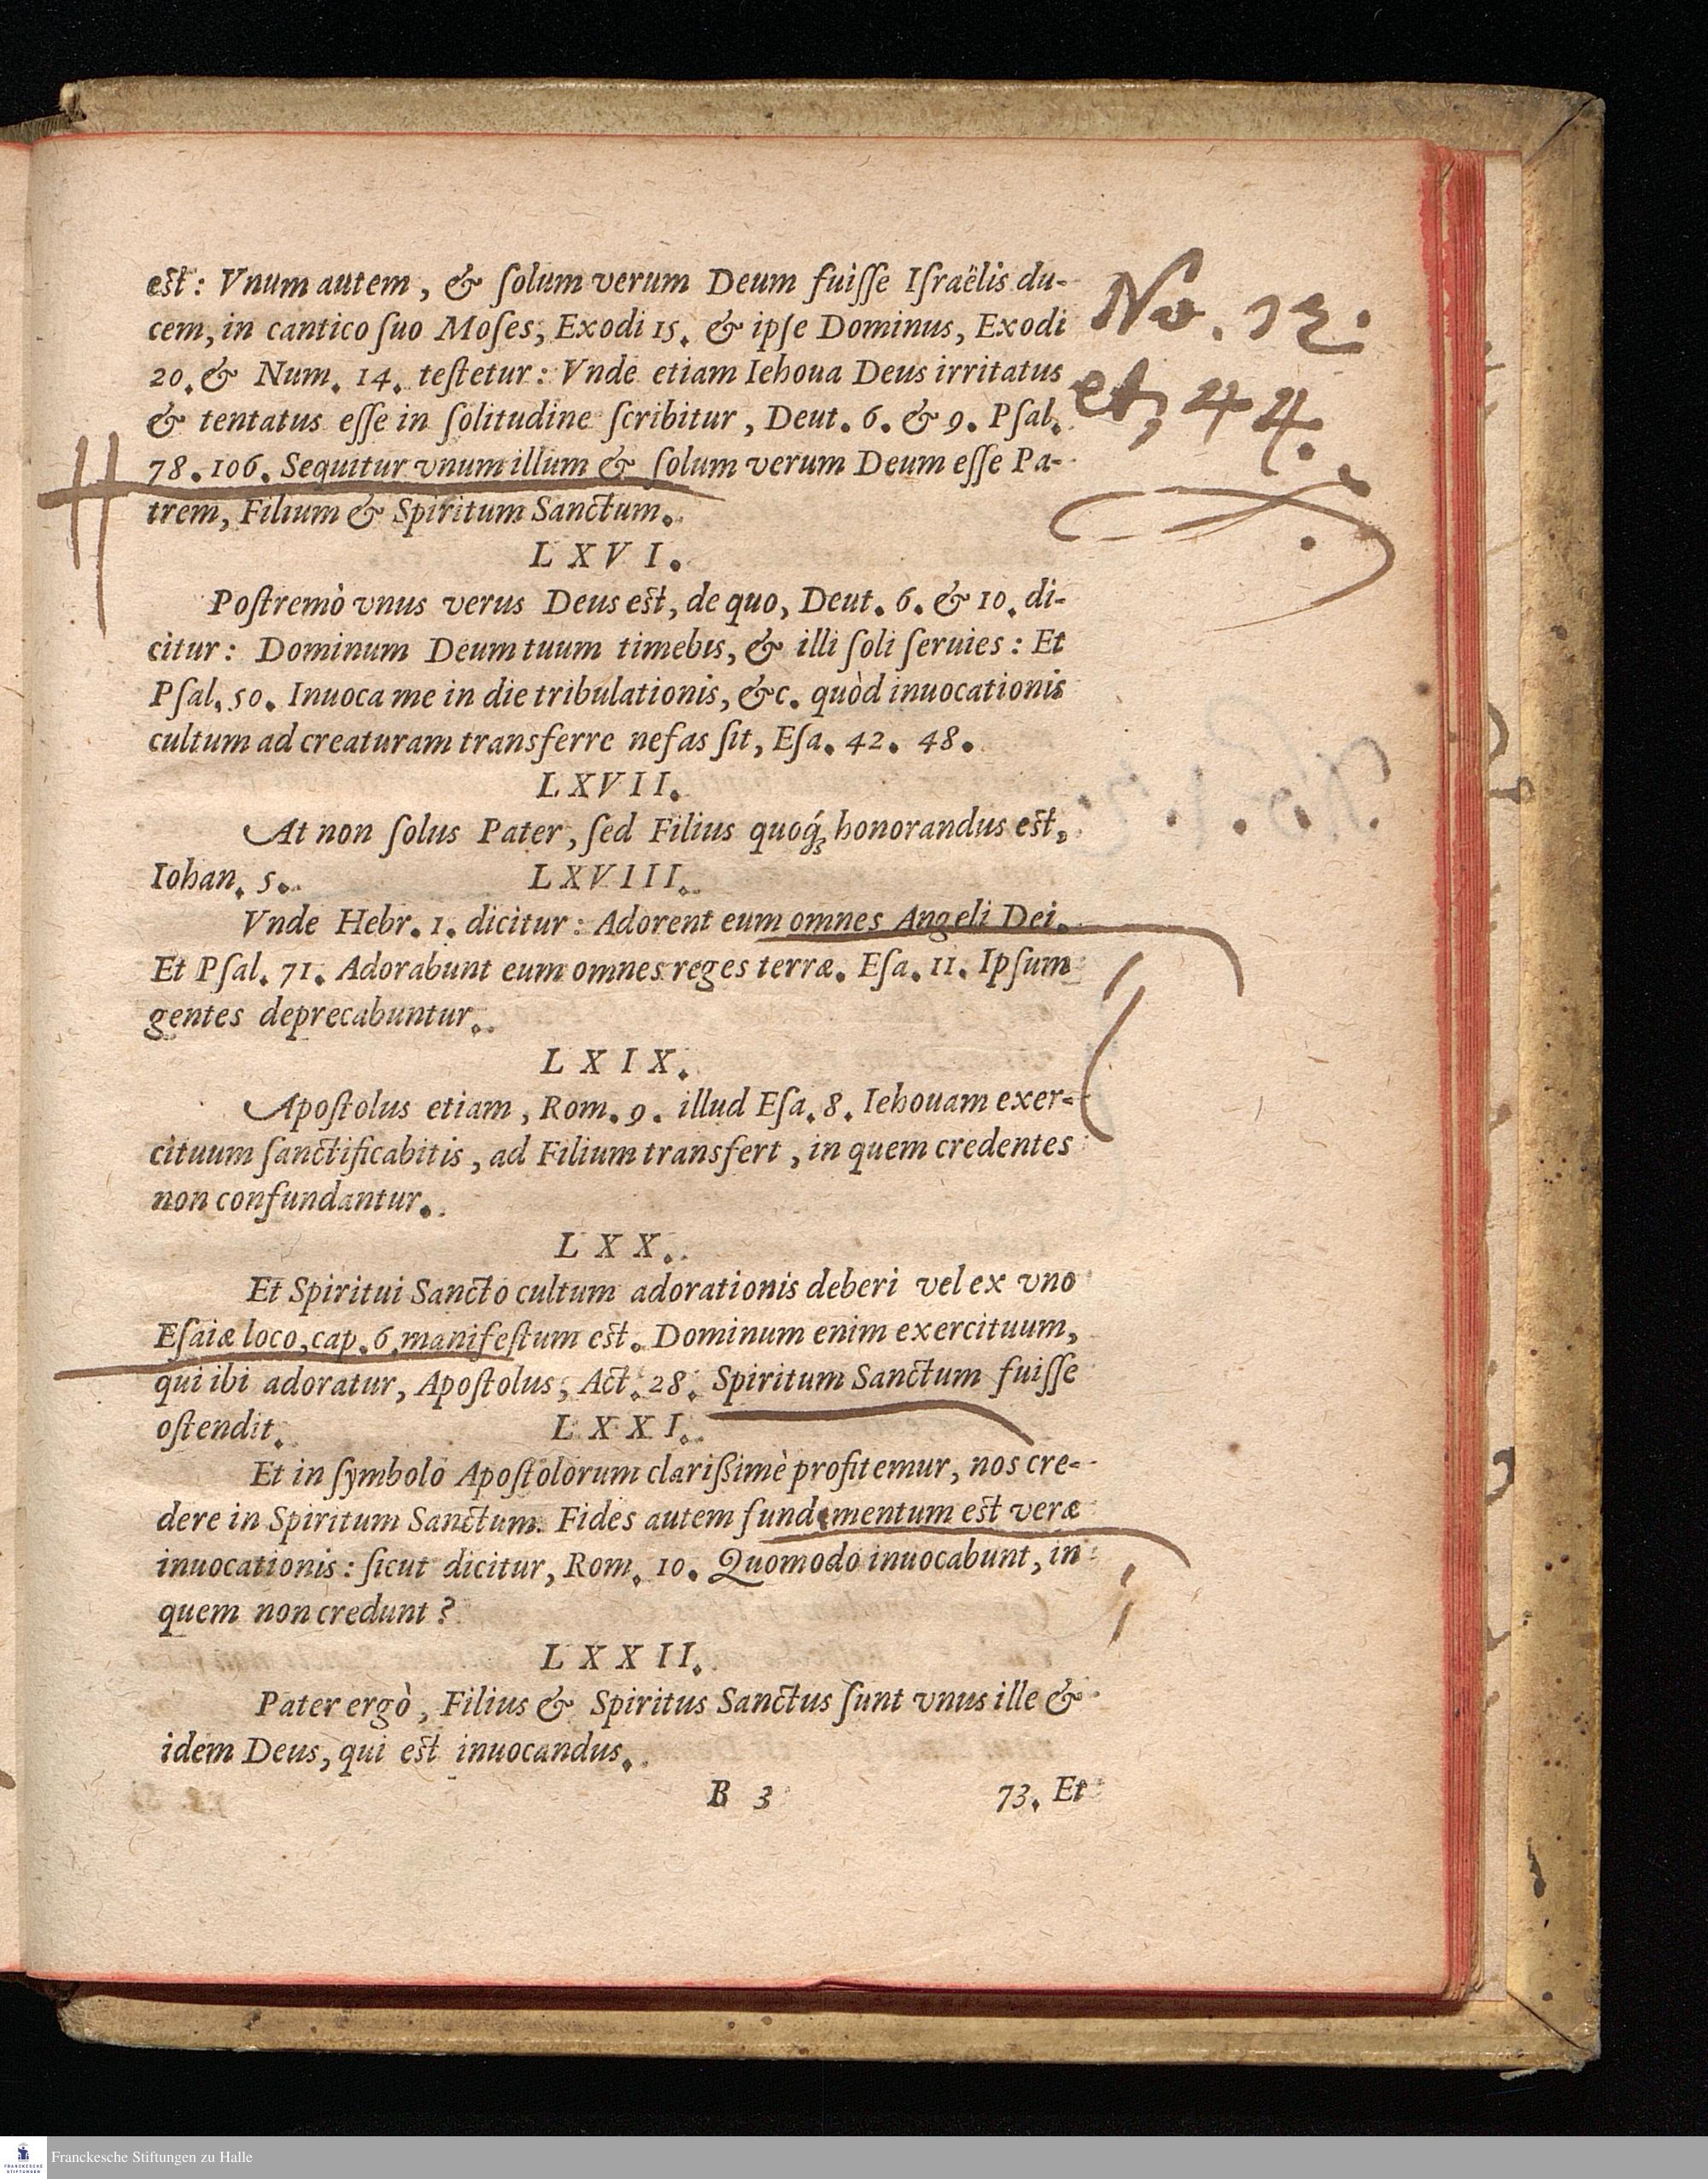 est: Vnum autem, & ſolum verum Deum fuiſſe Iſraëlis du-
cem, in cantico ſuo Moſes, Exodi 15. & ipſe Dominus, Exodi
20. & Num. 14. teſtetur: Vnde etiam Iehoua Deus irritatus
& tentatus eſſe in ſolitudine ſcribitur, Deut. 6. & 9. Pſal.
78. 106. Sequitur vnum illum & ſolum verum Deum eſſe Pa-
trem, Filium & Spiritum Sanctum.
No. 12.
et, 44.
LXVI.
Poſtremò vnus verus Deus est, de quo, Deut. 6. & 10. di-
citur: Dominum Deum tuum timebis, & illi ſoli ſeruies: Et
Pſal. 50. Inuoca me in die tribulationis, &c. quòd inuocationis
cultum ad creaturam transferre nefas ſit, Eſa. 42. 48.
LXVII.
At non ſolus Pater, ſed Filius quoq́ꝫ honorandus est,
Iohan. 5. LXVIII.
Vnde Hebr. 1. dicitur: Adorent eum omnes Angeli Dei.
Et Pſal. 71. Adorabunt eum omnes reges terræ. Eſa. 11. Ipſum
gentes deprecabuntur.
LXIX.
Apoſtolus etiam, Rom. 9. illud Eſa. 8. Iehouam exer-
cituum ſanctificabitis, ad Filium transfert, in quem credentes
non confundantur.
LXX.
Et Spiritui Sancto cultum adorationis deberi vel ex vno
Eſaiæ loco, cap. 6. manifeſtum est. Dominum enim exercituum,
qui ibi adoratur, Apoſtolus, Act. 28. Spiritum Sanctum fuiſſe
oſtendit. LXXI.
Et in ſymbolo Apoſtolorum clariſsimè profitemur, nos cre-
dere in Spiritum Sanctum. Fides autem fundamentum est veræ
inuocationis: ſicut dicitur, Rom. 10. Quomodo inuocabunt, in
quem non credunt?
LXXII.
Pater ergò, Filius & Spiritus Sanctus ſunt vnus ille &
idem Deus, qui est inuocandus.
B 3 73. Et
Franckesche Stiftungen zu Halle